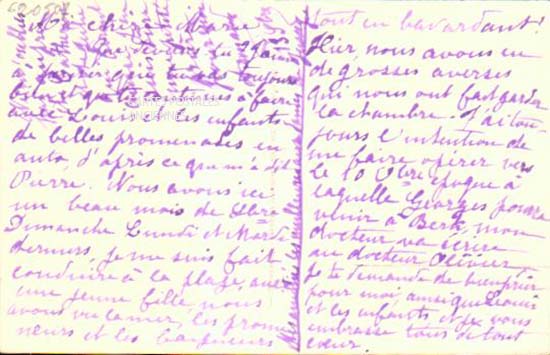 Ma chère Marie
que tu vas toujours
bien et que tu continues à faire
avec Louis et les enfants
de belles promenades en
auto, d'après ce que m'a dit
Pierre. Nous avons ici
un beau mois de 7bre
Dimanche Lundi et Mardi
derniers, je me suis fait
conduire à la plage, avec
une jeune fille, nous
avons vu la mer, les prome
neurs et les baigneurs
tout en bavardant!
Hier, nous avons eu
de grosses averses
qui nous ont fait garder
la chambre. J'ai tou-
jours l'intention de
me faire opérer vers
le 10 8bre époque à
laquelle Georges pourra
venir à Berck, mon
docteur va écrire
au docteur Olivier
Je te demande de bien prier
pour moi, ainsi que Louis
et les enfants et je vous
embrasse tous de tout
cœur.
CARTES POSTALES
ANCIENNES